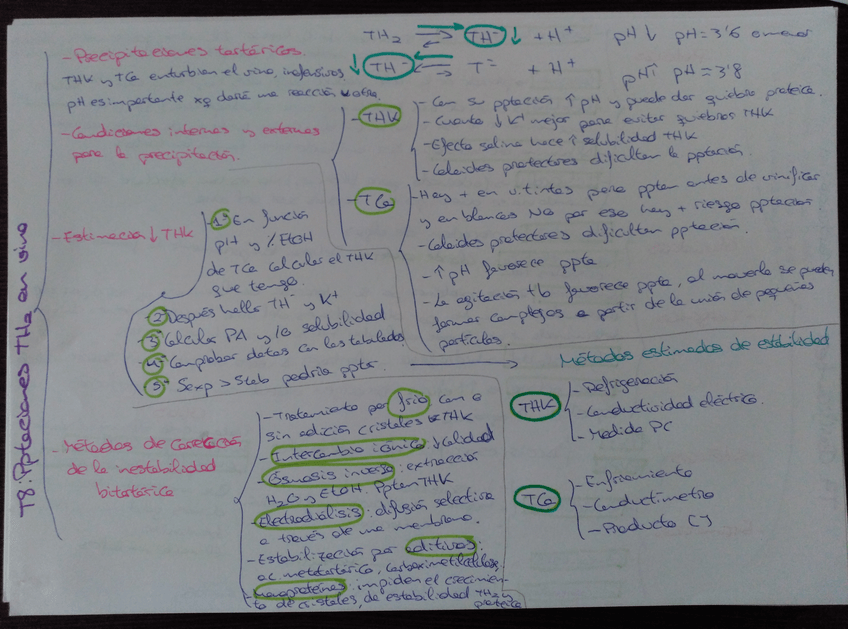 T8: Pptaciones TH2 en vino
- Precipitaciones tartáricas.
THK y TCa enturbian el vino, inofensivos
pH es importante xq dará una reacción u otra.
TH2 ⇌ TH⁻ ↓ + H⁺ pH ↓ pH = 3'6 o menor
↓ TH⁻ ⇌ T⁼ + H⁺ pH ↑ pH = 3'8
- Condiciones internas y externas
para la precipitación.
- THK
- Con su pptación ↑ pH y puede dar quiebra proteica.
- Cuanto ↓ K⁺ mejor para evitar quiebras THK
- Efecto salino hace ↑ solubilidad THK
- Coloides protectores dificultan la pptación.
- TCa
- Hay + en v. tintos para pptar antes de vinificar
y en blancos NO por eso hay + riesgo pptación.
- Coloides protectores dificultan pptación.
- ↑ pH favorece ppta.
- La agitación tb favorece ppta, al moverlo se pueden
formar complejos a partir de la unión de pequeñas
partículas.
- Estimación ↓ THK
- 1º En función
pH y % EtOH
de TCa calcular el THK
que tengo.
2 - Después hallo TH⁻ y K⁺
3 - Calcular PA y/o solubilidad
4 - Comprobar datos con los tabulados
5 - Sexp > Stab podría pptar.
Métodos estimados de estabilidad
THK
- Refrigeración
- Conductividad eléctrica.
- Medida PC
TCa
- Enfriamiento
- Conductímetro
- Producto CJ
- Métodos de corrección
de la inestabilidad
bitartárica
- Tratamiento por frío con o
sin adición cristales THK
- Intercambio iónico: ↓ calidad
- Ósmosis inversa: extracción
H2O y EtOH. Pptan THK
- Electrodiálisis: difusión selectiva
a través de una membrana.
- Estabilización por aditivos:
ac. metatartárico, carboximetilcelulosa,
- Manoproteínas: impiden el crecimien-
to de cristales, da estabilidad TH2 y
proteica